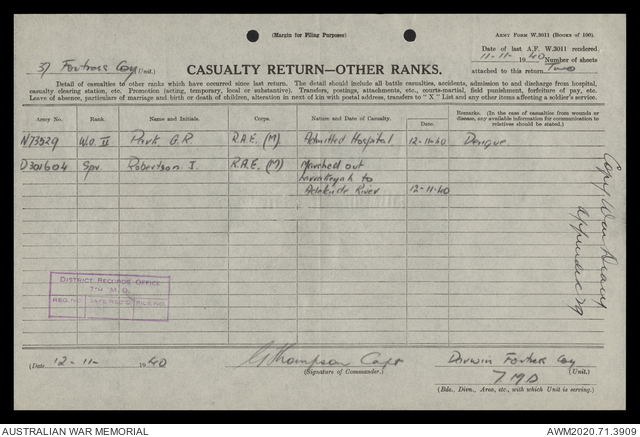 (Margin for Filing Purposes)
ARMY FORM W.3011 (BOOKS OF 100).
Date of last A.F. W.3011 rendered
11-11- 1940 Number of sheets
attached to this return Two
37 Fortress Coy (Unit.)
CASUALTY RETURN—OTHER RANKS.
Detail of casualties to other ranks which have occurred since last return. The detail should include all battle casualties, accidents, admission to and discharge from hospital,
casualty clearing station, etc., Promotion (acting, temporary, local or substantive). Transfers, postings, attachments, etc., courts-martial, field punishment, forfeiture of pay, etc.
Leave of absence, particulars of marriage and birth or death of children, alteration in next of kin with postal address, transfers to "X" List and any other items affecting a soldier's service.
Army No. Rank. Name and Initials. Corps. Nature and Date of Casualty. Date. Remarks. (In the case of casualties from wounds or disease, any available information for communication to relatives should be stated.)
N73529 W.O. II Park G.R. R.A.E. (M) Admitted Hospital 12-11-40 Dengue
D301604 Spr. Robertson J. R.A.E. (M) Marched out
Larrakeyah to
Adelaide River 12-11-40
Copy War Diary
Appendix 29
DISTRICT RECORDS OFFICE
7TH M.D.
REG. NO. INTERESTS FILE NO.
(Date 12-11- 1940
G Thompson Capt
(Signature of Commander.)
Darwin Fortress Coy
(Unit.)
7 M D
(Bde., Divn., Area, etc., with which Unit is serving.)
AUSTRALIAN WAR MEMORIAL
AWM2020.71.3909